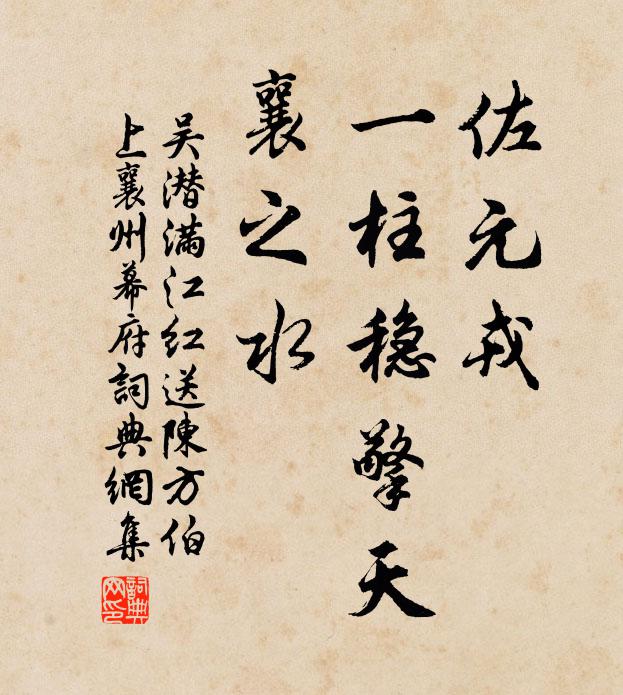 佐元戎
一柱稳擎天
襄之水
吴潜满江红送陳方伯
上襄州幕府詞典網集
詞典网印